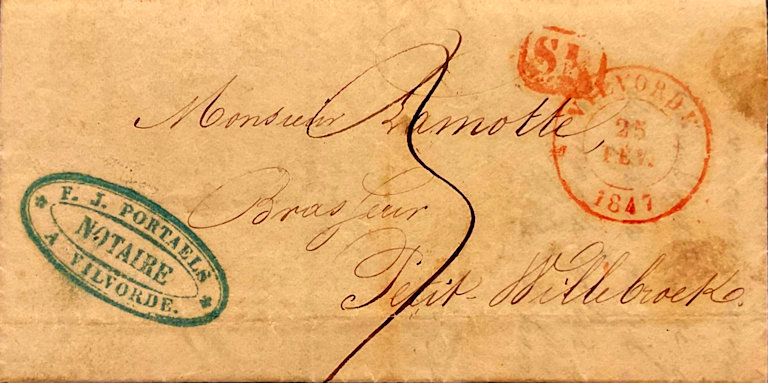 SR
VILVORDE
25
FÉV.
1847
Monsieur Ramotte,
Brasseur
Petit-Willebroek.
3
F. J. PORTAELS
NOTAIRE
A VILVORDE.